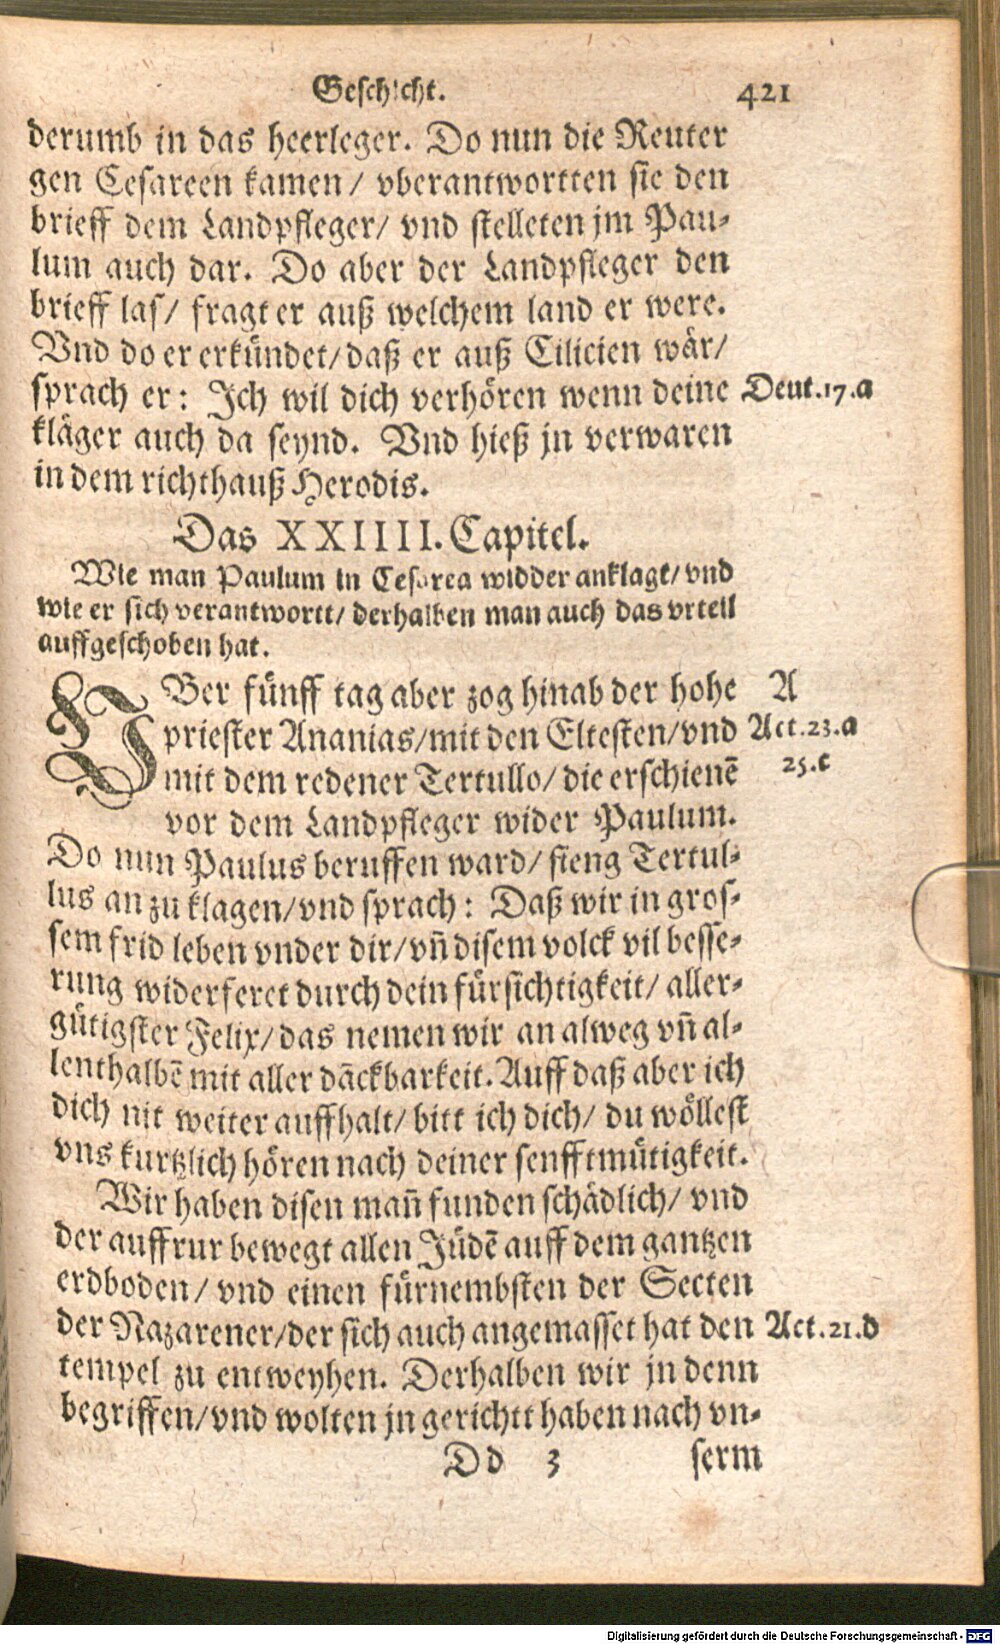 Geschicht. 421
derumb in das heerleger. Do nun die Reuter
gen Cesareen kamen / vberantwortten sie den
brieff dem Landpfleger/ vnd stelleten jm Pau-
lum auch dar. Do aber der Landpfleger den
brieff las/ fragt er auß welchem land er were.
Vnd do er erkündet/daß er auß Cilicien wär/
sprach er: Ich wil dich verhören wenn deine Deut.17.a
kläger auch da seynd. Vnd hieß jn verwaren
in dem richthauß Herodis.
Das XXIIII. Capitel.
Wie man Paulum in Cesarea widder anklagt/ vnd
wie er sich verantwortt/ derhalben man auch das vrteil
auffgeschoben hat.
VBer fünff tag aber zog hinab der hohe A
priester Ananias/mit den Eltesten/vnd Act.23.a
mit dem redener Tertullo/ die erschienē 25.c
vor dem Landpfleger wider Paulum.
Do nun Paulus beruffen ward/ fieng Tertul-
lus an zu klagen/vnd sprach: Daß wir in gros-
sem frid leben vnder dir/vn̄ disem volck vil besse-
rung widerferet durch dein fürsichtigkeit/ aller-
gütigster Felix/ das nemen wir an alweg vn̄ al-
lenthalbē mit aller dāckbarkeit. Auff daß aber ich
dich nit weiter auffhalt/ bitt ich dich/ du wöllest
vns kurtzlich hören nach deiner senfftmütigkeit.
Wir haben disen man̄ funden schädlich/ vnd
der auffrur bewegt allen Jüdē auff dem gantzen
erdboden/ vnd einen fürnembsten der Secten
der Nazarener/der sich auch angemasset hat den Act.21.d
tempel zu entweyhen. Derhalben wir jn denn
begriffen/vnd wolten jn gerichtt haben nach vn-
Dd 3 serm
Digitalisierung gefördert durch die Deutsche Forschungsgemeinschaft - DFG